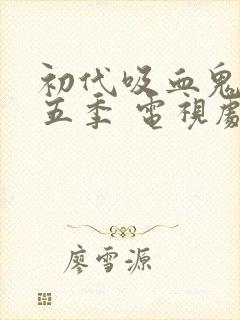 初代吸血鬼
五季 電視劇
廖雪源